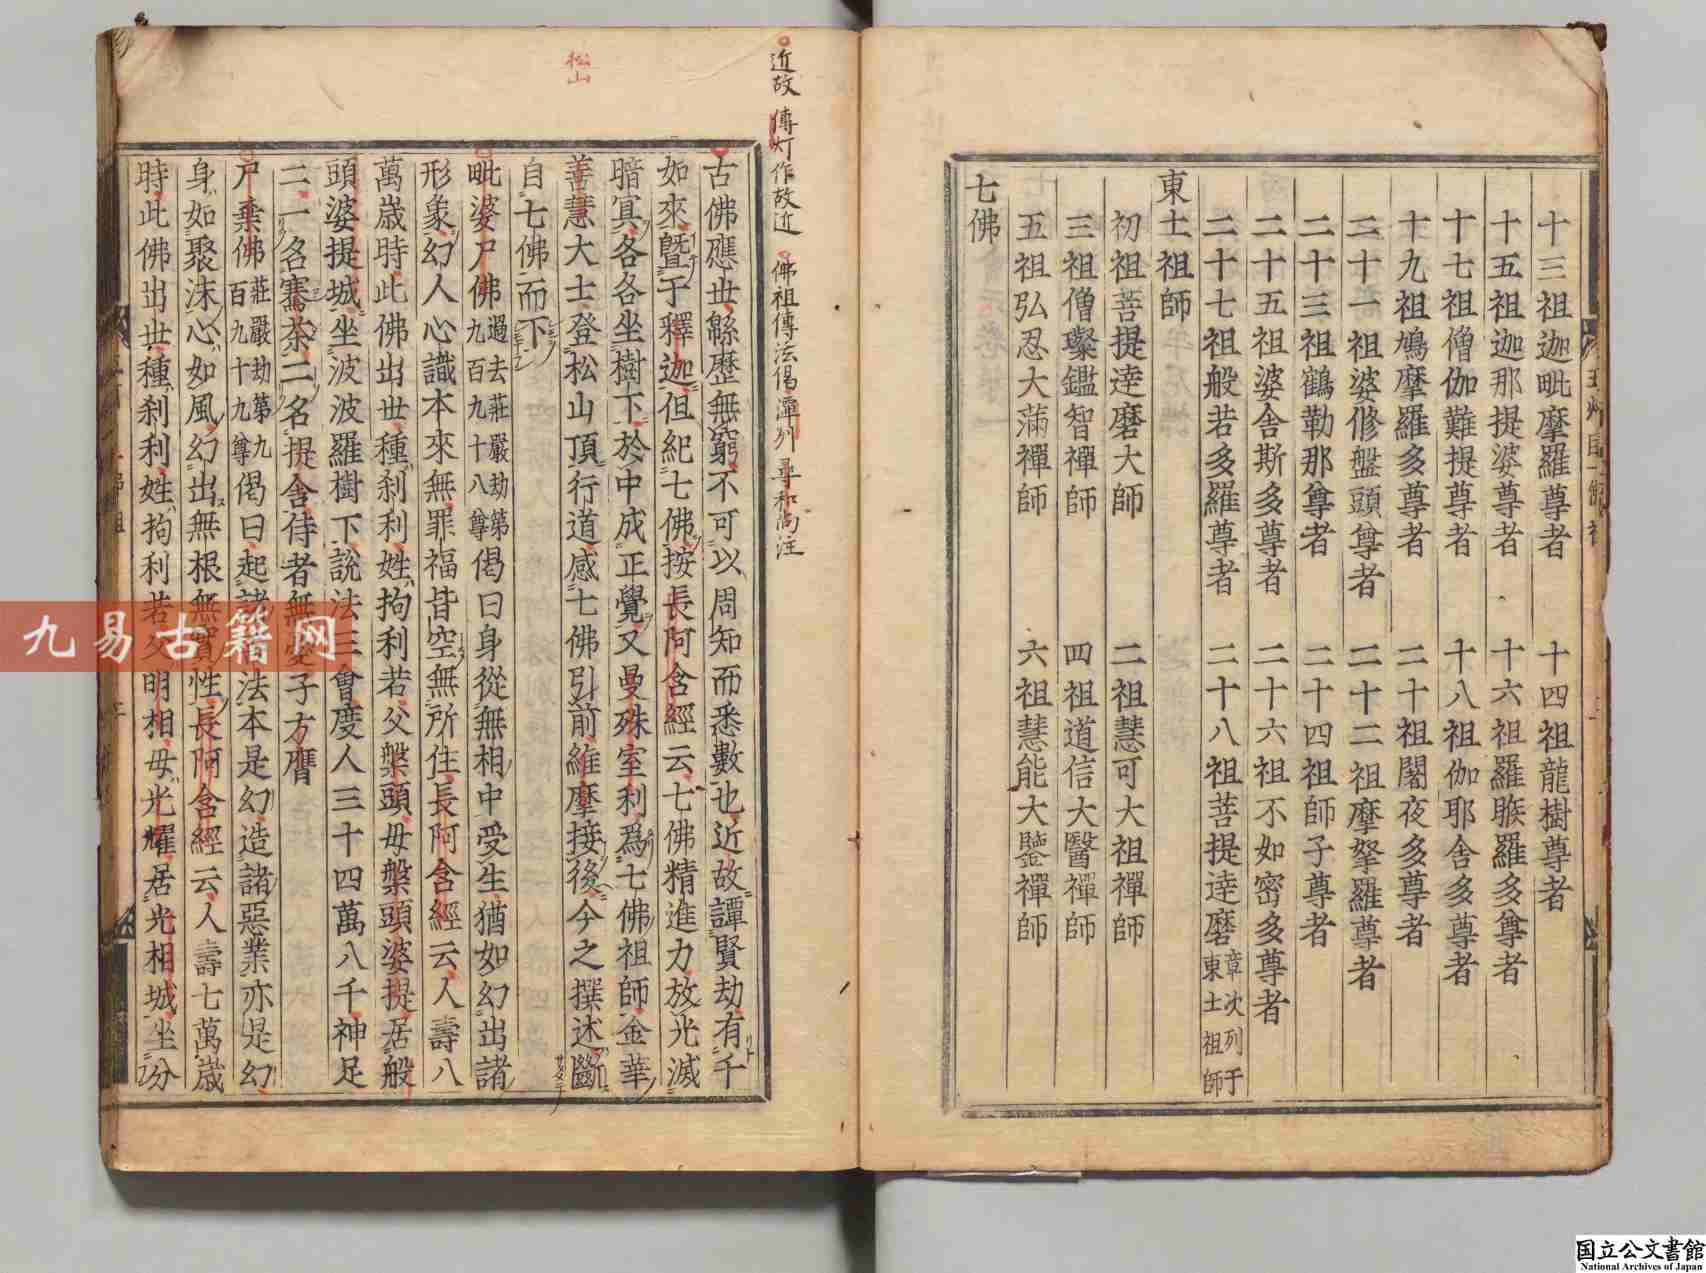 十三祖迦毗摩羅尊者　十四祖龍樹尊者
十五祖迦那提婆尊者　十六祖羅睺羅多尊者
十七祖僧伽難提尊者　十八祖伽耶舍多尊者
十九祖鳩摩羅多尊者　二十祖闍夜多尊者
二十一祖婆修盤頭尊者　二十二祖摩拏羅尊者
二十三祖鶴勒那尊者　二十四祖師子尊者
二十五祖婆舍斯多尊者　二十六祖不如密多尊者
二十七祖般若多羅尊者　二十八祖菩提達磨章次列于東土祖師
東土祖師
初祖菩提達磨大師　二祖慧可大祖禪師
三祖僧璨鑑智禪師　四祖道信大醫禪師
五祖弘忍大滿禪師　六祖慧能大鑒禪師
七佛
近故 傳灯作故近 佛祖傳法偈潭列 尋和尚注
松山
古佛應世緜歷無窮不可以周知而悉數也近故譚賢劫有千
如來曁于釋迦但紀七佛按長阿含經云七佛精進力放光滅
暗冥各各坐樹下於中成正覺又曼殊室利爲七佛祖師金華
善慧大士登松山頂行道感七佛引前維摩接後今之撰述斷
自七佛而下
毗婆尸佛過去莊嚴劫第九百九十八尊偈曰身從無相中受生猶如幻出諸
形象幻人心識本來無罪福皆空無所住長阿含經云人壽八
萬歲時此佛出世種刹利姓拘利若父槃頭母槃頭婆提居般
頭婆提城坐波波羅樹下說法三會度人三十四萬八千神足
二一名騫茶二名提舍侍者無憂子方膺
尸棄佛莊嚴劫第九百九十九尊偈曰起諸法本是幻造諸惡業亦是幻
身如聚沫心如風幻出無根無實性長阿含經云人壽七萬歲
時此佛出世種刹利姓拘利若父明相母光耀居光相城坐分
九易古籍网
国立公文書館
National Archives of Japan